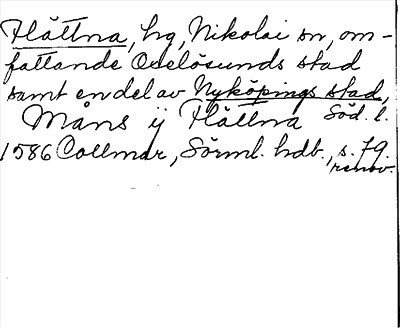 Hättna, hg, Nikolai sn, om-
fattande Oxelösunds stad
samt en del av Nyköpings stad,
Söd. l.
Måns ij Hättna
1586 Collmar, Sörml. hdb., s. 79.
renov.